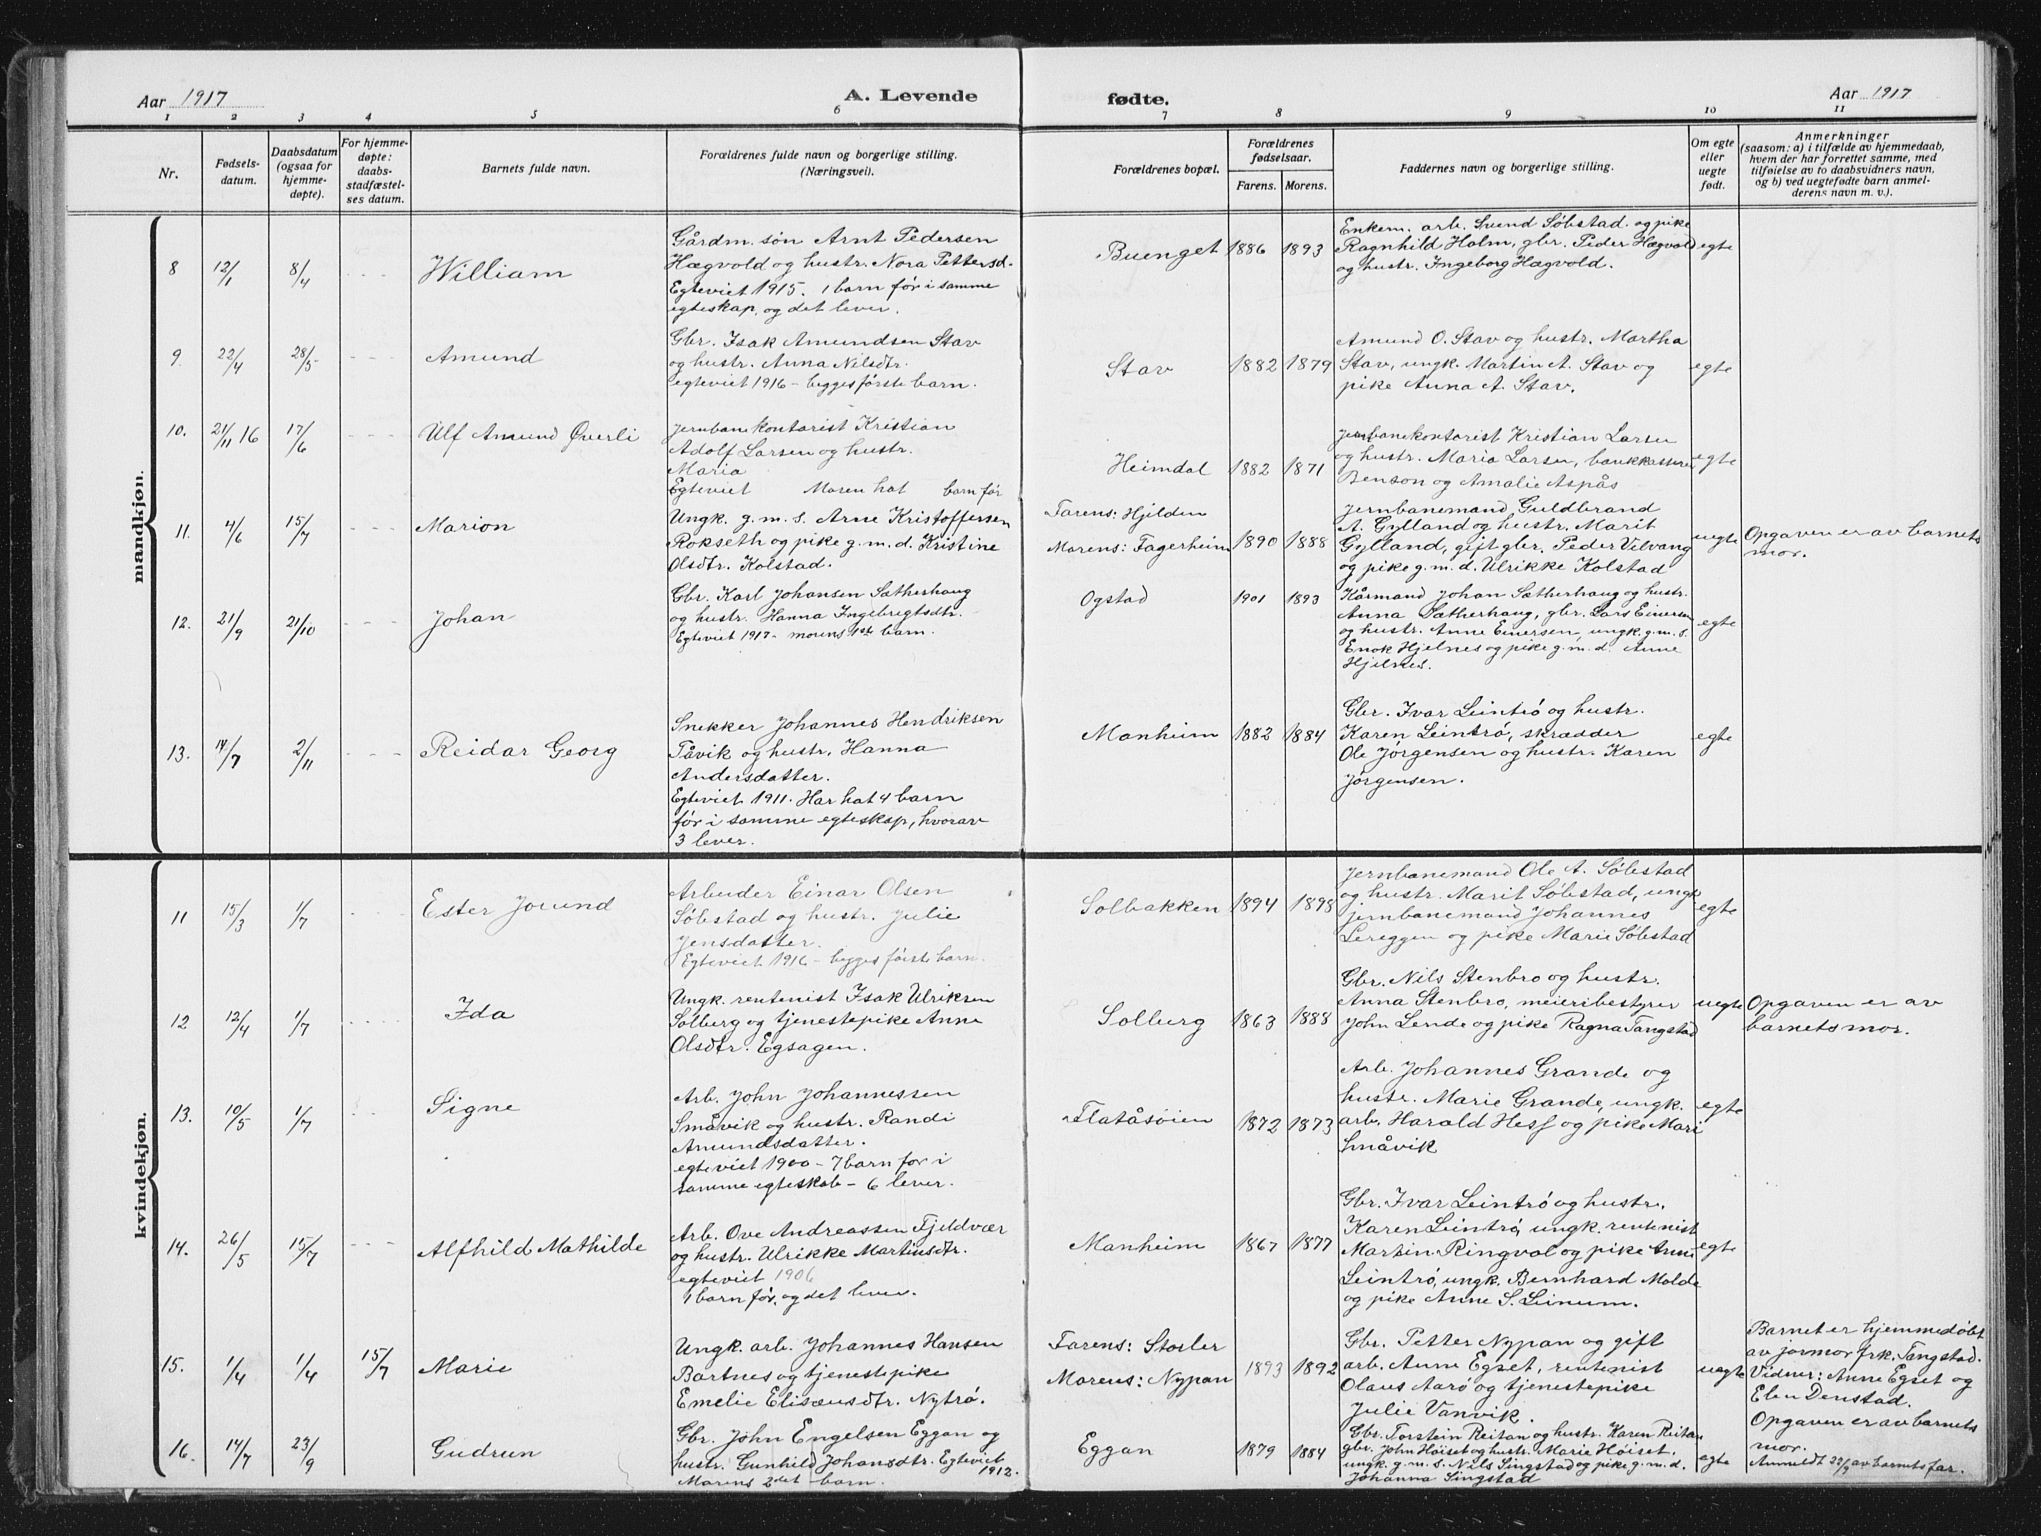 Aar 1917
A. Levende
fødte.
Aar 1917
1 2 3 4 5 6 7 8 9 10 11
Nr.
Fødsels-
datum.
Daabsdatum
(ogsaa for
hjemme-
døpte).
For hjemme-
døpte:
daabs-
stadfæstel-
ses datum.
Barnets fulde navn.
Forældrenes fulde navn og borgerlige stilling.
(Næringsvei).
Forældrenes bopæl.
Forældrenes
fødselsaar.
Farens. Morens.
Faddernes navn og borgerlige stilling.
Om egte
eller
uegte
født.
Anmerkninger
(saasom: a) i tilfælde av hjemmedaab,
hvem der har forrettet samme, med
tilføielse av to daabsvidners navn,
og b) ved uegtefødte barn anmel-
derens navn m. v.).
mandkjøn.
8 12/1 8/4 William
Gårdm. søn Arnt Pedersen
Hægvold og hustr. Nora Pettersd.
Egteviet 1915. 1 barn før i samme
egteskap, og det lever.
Buenget 1886 1893
Enkem. arb. Svend Søbstad og pike
Ragnhild Holm, gbr. Peder Hægvold
og hustr. Ingeborg Hægvold.
egte
9 22/4 28/5 Amund
Gbr. Isak Amundsen Stav
og hustr. Anna Nilsdtr.
egteviet 1916 - begges første barn.
Stav 1882 1879
Amund O. Stav og hustr. Martha
Stav, ungk. Martin A. Stav og
pike Anna A. Stav.
egte
10. 21/11 16 17/6 Ulf Amund Øverli
Jernbanekontorist Kristian
Adolf Larsen og hustr.
Maria
Egteviet Moren hat barn før
Heimdal 1882 1871
Jernbanekontorist Kristian Larsen
og hustr. Maria Larsen, bankkasserer
Benson og Amalie Aspås
egte
11. 4/6 15/7 Marion
Ungk. g.m.s. Arne Kristoffersen
Rokseth og pike g.m.d. Kristine
Olsdtr. Kolstad.
Farens: Hjilden
Morens: Fagerheim 1890 1888
Jernbanemand Guldbrand
A. Gylland og hustr. Marit
Gylland, gift gbr. Peder Vilvang
og pike g.m.d. Ulrikke Kolstad
uegte
Opgaven er av barnets
mor.
12. 21/9 21/10 Johan
Gbr. Karl Johansen Sætherhaug
og hustr. Hanna Ingebregtsdtr.
Egteviet 1917 - morens 1ste barn.
Ogstad 1901 1893
Kårmand Johan Sætherhaug og hustr.
Anna Sætherhaug, gbr. Lars Einersen
og hustr. Anne Einersen, ungk. g.m.s.
Enok Hjelnes og pike g.m.d. Anne
Hjelnes.
egte
13. 14/7 2/11 Reidar Georg
Snekker Johannes Hendriksen
Tåvik og hustr. Hanna
Andersdatter.
Egteviet 1911. Har hat 4 barn
før i samme egteskap, hvorav
3 lever.
Manheim 1882 1884
Gbr. Ivar Leintrø og hustr.
Karen Leintrø, skrædder
Ole Jørgensen og hustr. Karen
Jørgensen.
egte
kvindekjøn.
11 15/3 1/7 Ester Jorund
Arbeider Einar Olsen
Søbstad og hustr. Julie
Jensdatter.
Egteviet 1916 - begges første barn.
Solbakken 1894 1898
Jernbanemand Ole A. Søbstad
og hustr. Marit Søbstad, ungk.
jernbanemand Johannes
Lereggen og pike Marie Søbstad
egte
12 12/4 1/7 Ida
Ungk. rentenist Isak Ulriksen
Solberg og tjenestepike Anne
Olsdtr. Egsagen.
Solburg 1863 1888
Gbr. Nils Stenbro og hustr.
Anna Stenbro, meieribestyrer
John Lende og pike Ragna Tangstad
uegte
Opgaven er av
barnets mor.
13. 10/5 1/7 Signe
Arb. John Johannessen
Småvik og hustr. Randi
Amundsdatter.
egteviet 1900 - 7 barn før i
samme egteskab - 6 lever.
Flatåsøien 1872 1873
Arb. Johannes Grande og
hustr. Marie Grande, ungk.
arb. Harald Hess og pike Mari
Småvik
egte
14. 26/5 15/7 Alfhild Mathilde
Arb. Ove Andreassen Fjeldvær
og hustr. Ulrikke Martinsdtr.
egteviet 1906
1 barn før, og det lever.
Manheim 1867 1877
Gbr. Ivar Leintrø og hustr.
Karen Leintrø, ungk. rentenist
Martin Ringvol og pike Anne
Leintrø, ungk. Bernhard Molde
og pike Anne S. Leinum.
egte
15. 1/4 1/4 15/7 Marie
Ungk. arb. Johannes Hansen
Bartnes og tjenestepike
Emelie Elisæusdtr. Nytrø.
Farens: Storler
Morens: Nypan 1893 1892
Gbr. Petter Nypan og gift
arb. Anne Egset, rentenist
Olaus Aarø og tjenestepike
Julie Vanvik.
uegte
Barnet er hjemmedøbt
av jormor frk. Tangstad.
Vidner: Anne Egset og
Elen Denstad.
Opgaven er av barnets
mor.
16. 14/7 23/9 Gudrun
Gbr. John Engelsen Eggan og
hustr. Gunhild Johansdtr. Egteviet
1912.
Morens 2det barn.
Eggan 1879 1884
Gbr. Torstein Reitan og hustr. Karen Reitan
gbr. John Høiset og hustr. Marie Høiset.
ungk. g.m.s. Nils Singstad og pike g.m.d.
Johanna Singstad
egte
Anmeldt 22/9 av barnets far.